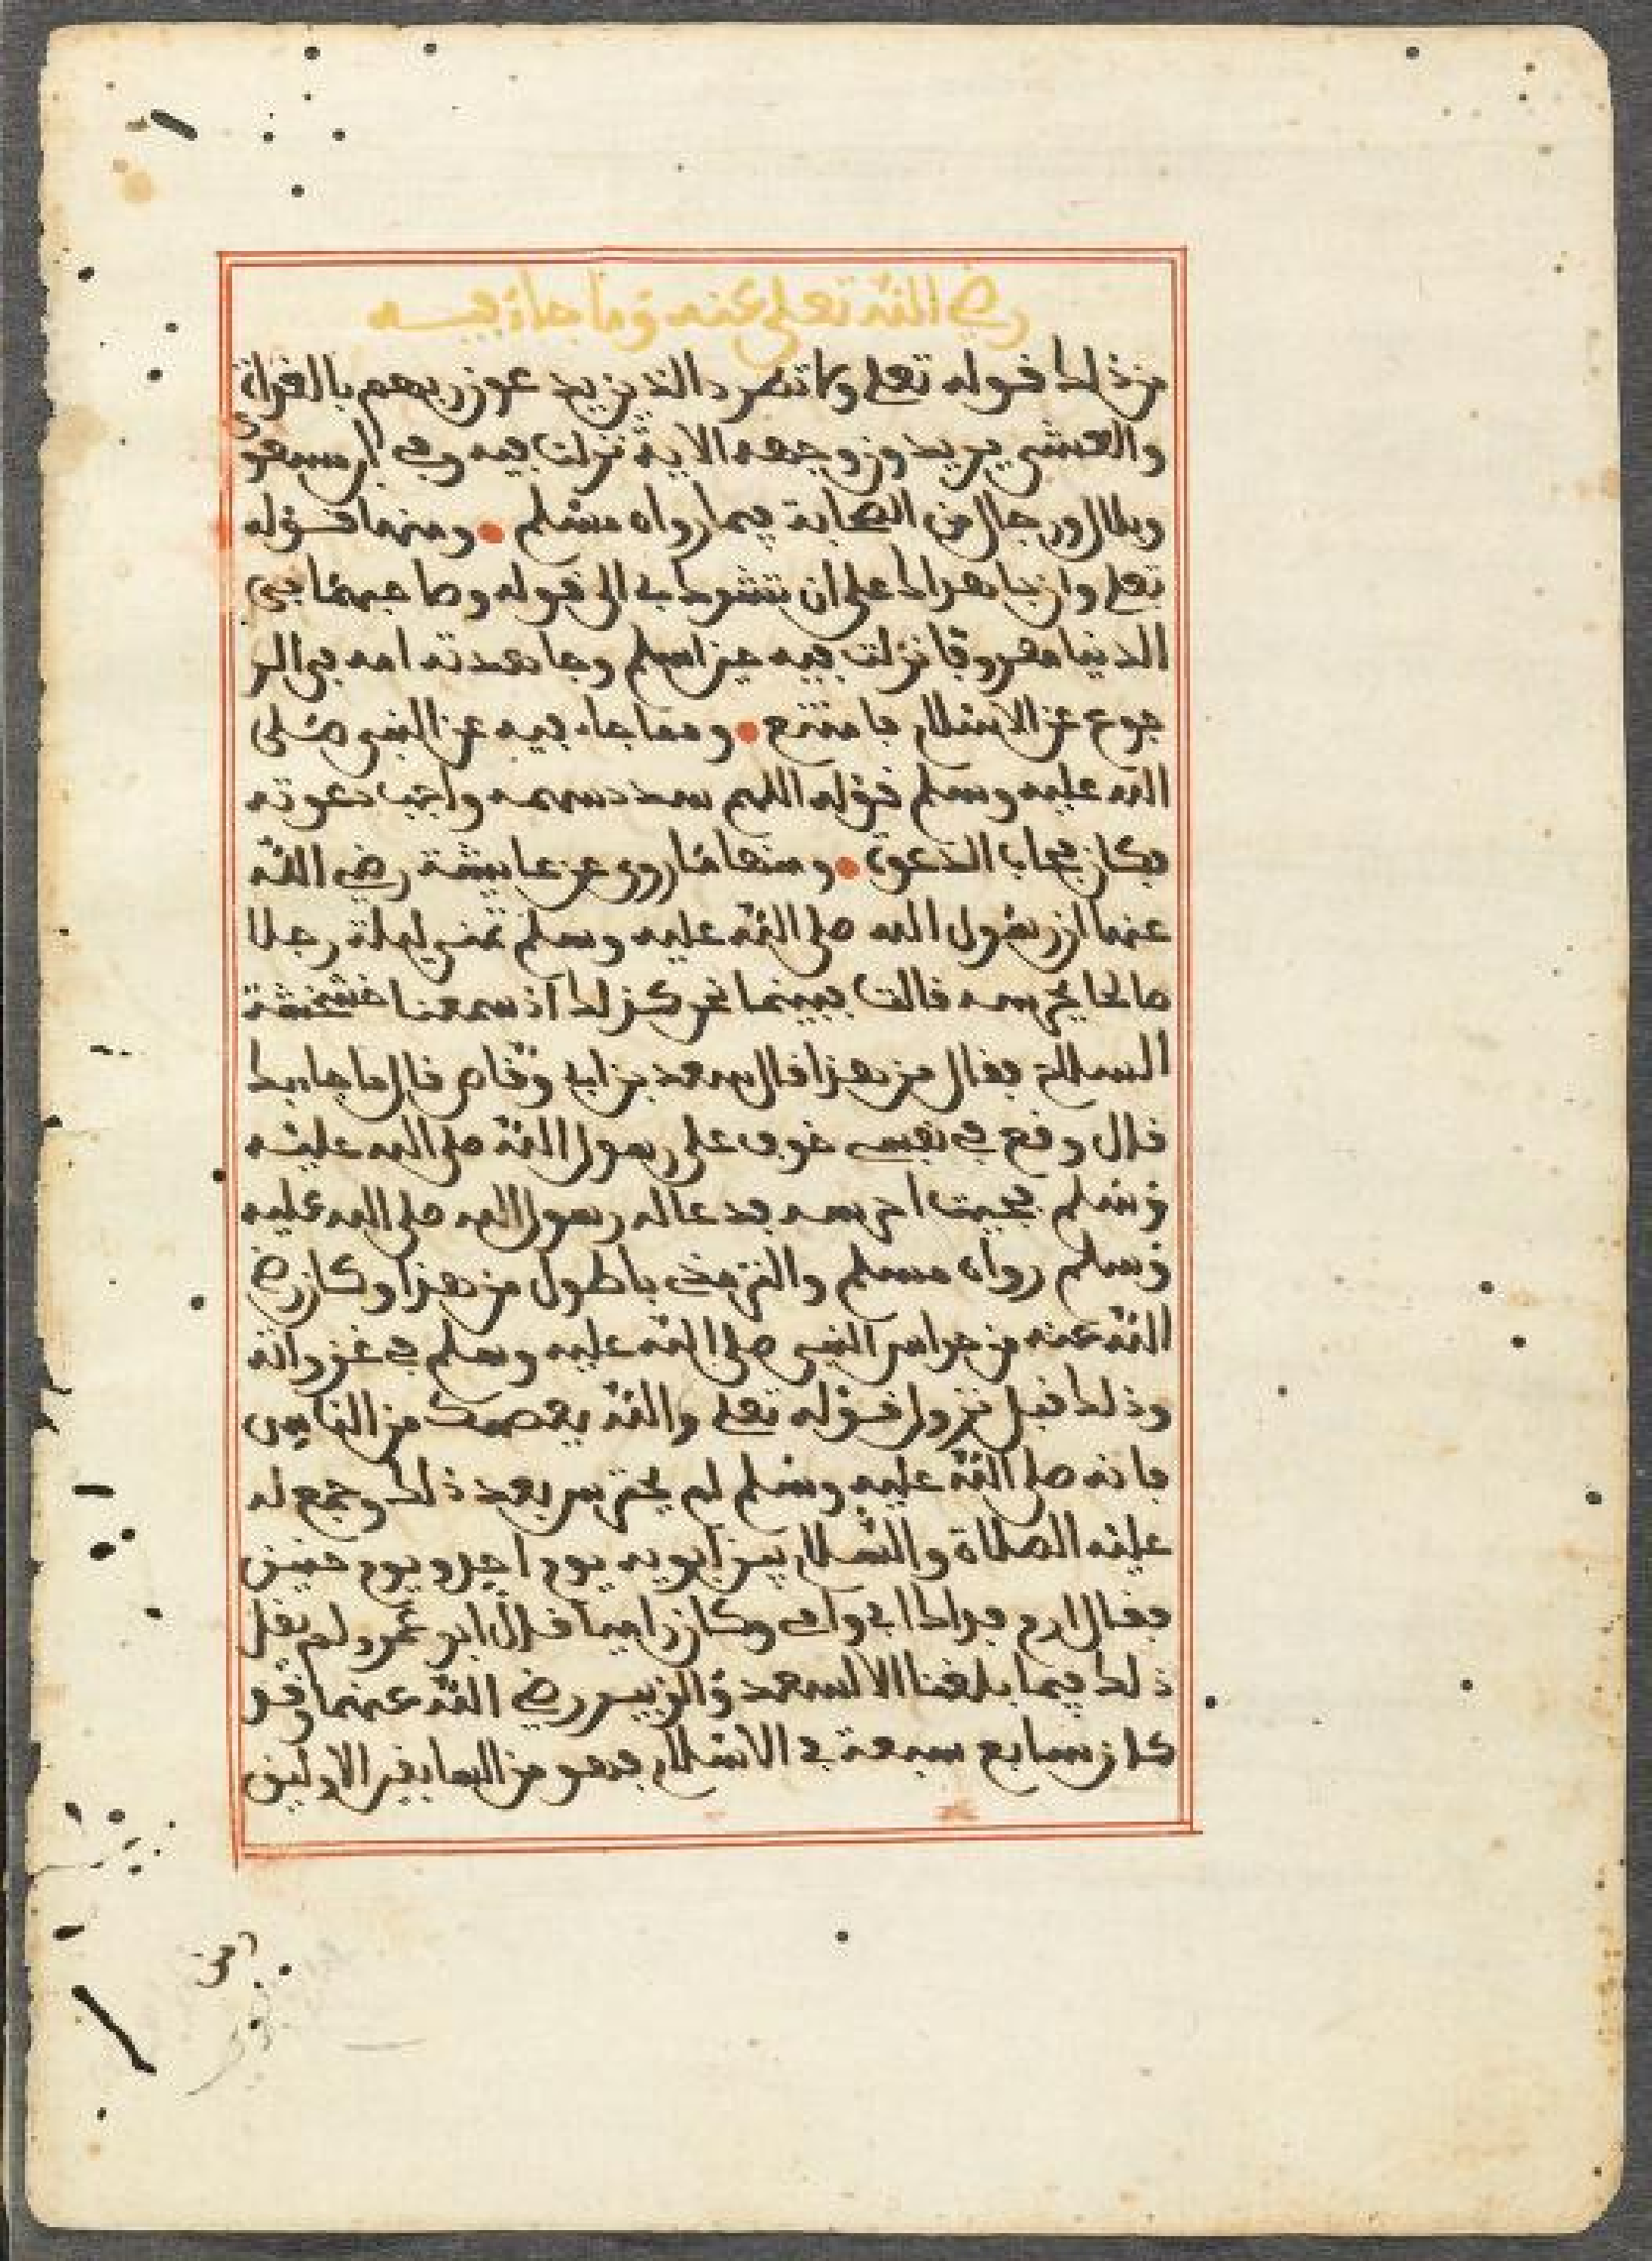 رضي الله تعلى عنه وما جاء فيه
من ذلك قوله تعلى ولا تطرد الذين يدعون ربهم بالغداة
والعشي يريدون وجهه الاية نزلت فيه وفي ابن مسعود
وبلال ورجال من الصحابة فيما رواه مسلم • ومنها قوله
تعلى وان جاهداك على ان تشرك بي الى قوله وصاحبهما في
الدنيا معروفا نزلت فيه حين اسلم وجاهدته امه في الر
جوع عن الاسلام فامتنع • ومما جاء فيه عن النبي صلى
الله عليه وسلم قوله اللهم سدد سهمه واجب دعوته
فكان مجاب الدعوة • ومنها ما روي عن عايشة رضي الله
عنها ان رسول الله صلى الله عليه وسلم تمنى ليلة رجلا
صالحا يحرسه قالت فبينما نحن كذلك اذ سمعنا خشخشة
السلاح فقال من هذا قال سعد بن ابي وقاص قال ما جاء بك
قال وقع في نفسي خوف على رسول الله صلى الله عليه
وسلم فجيت احرسه فدعا له رسول الله صلى الله عليه
وسلم رواه مسلم والترمذي باطول من هذا وكان رضي
الله عنه من حراس النبي صلى الله عليه وسلم في غزواته
وذلك قبل نزول قوله تعلى والله يعصمك من الناس
فانه صلى الله عليه وسلم لم يحترس بعد ذلك وجمع له
عليه الصلاة والسلام بين ابويه يوم احد ويوم حنين
فقال ارم فداك ابي وامي وكان راميا قال ابو عمر ولم يقل
ذلك فيما بلغنا الا لسعد والزبير رضي الله عنهما وقد
كان سابع سبعة في الاسلام فهو من السابقين الاولين